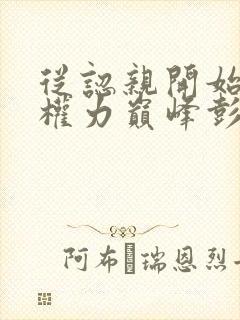 從認親開始
權力巔峰彭
阿布瑞恩烈